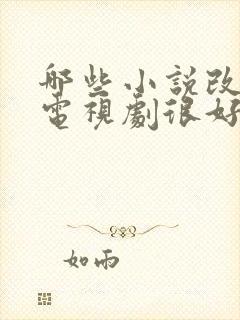 哪些小說改
電視劇很好
如雨